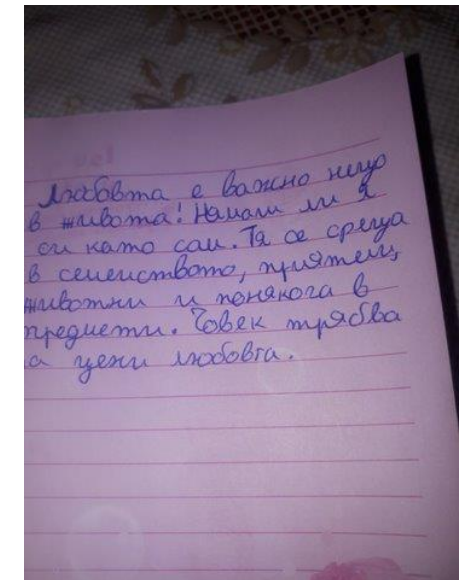 Любовта е важно нещо
в живота! Нямаш ли я
си като сам. Тя се среща
в семейството, приятели,
животни и понякога в
предмети. Човек трябва
а цени любовта.